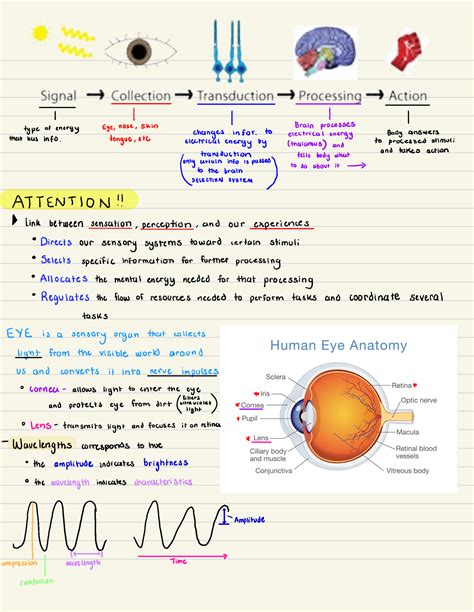 Signal → Collection → Transduction → Processing → Action
type of energy that has info.
Eye, nose, skin
tongue, etc
changes infor. to
electrical energy by
transduction
(only certain info is passes
to the brain
SELECTION SYSTEM)
Brain processes
electrical energy
(thalamus) and
tells body what
to do about it
Body answers
to processed stimuli
and takes action
ATTENTION!!
Link between sensation, perception, and our experiences
• Directs our sensory systems toward certain stimuli
• Selects specific information for further processing
• Allocates the mental energy needed for that processing
• Regulates the flow of resources needed to perform tasks and coordinate several
tasks
EYE is a sensory organ that collects
light from the visible world around
us and converts it into nerve impulses
• Cornea - allows light to enter the eye
and protects eye from dirt (filters ultraviolet light)
• Lens - transmits light and focuses it on retina
- Wavelengths corresponds to hue
• the amplitude indicates brightness
• the wavelength indicates characteristics
Human Eye Anatomy
Sclera
Iris
Cornea
Pupil
Lens
Ciliary body
and muscle
Conjunctiva
Retina
Optic nerve
Macula
Retinal blood
vessels
Vitreous body
Amplitude
wavelength
Time